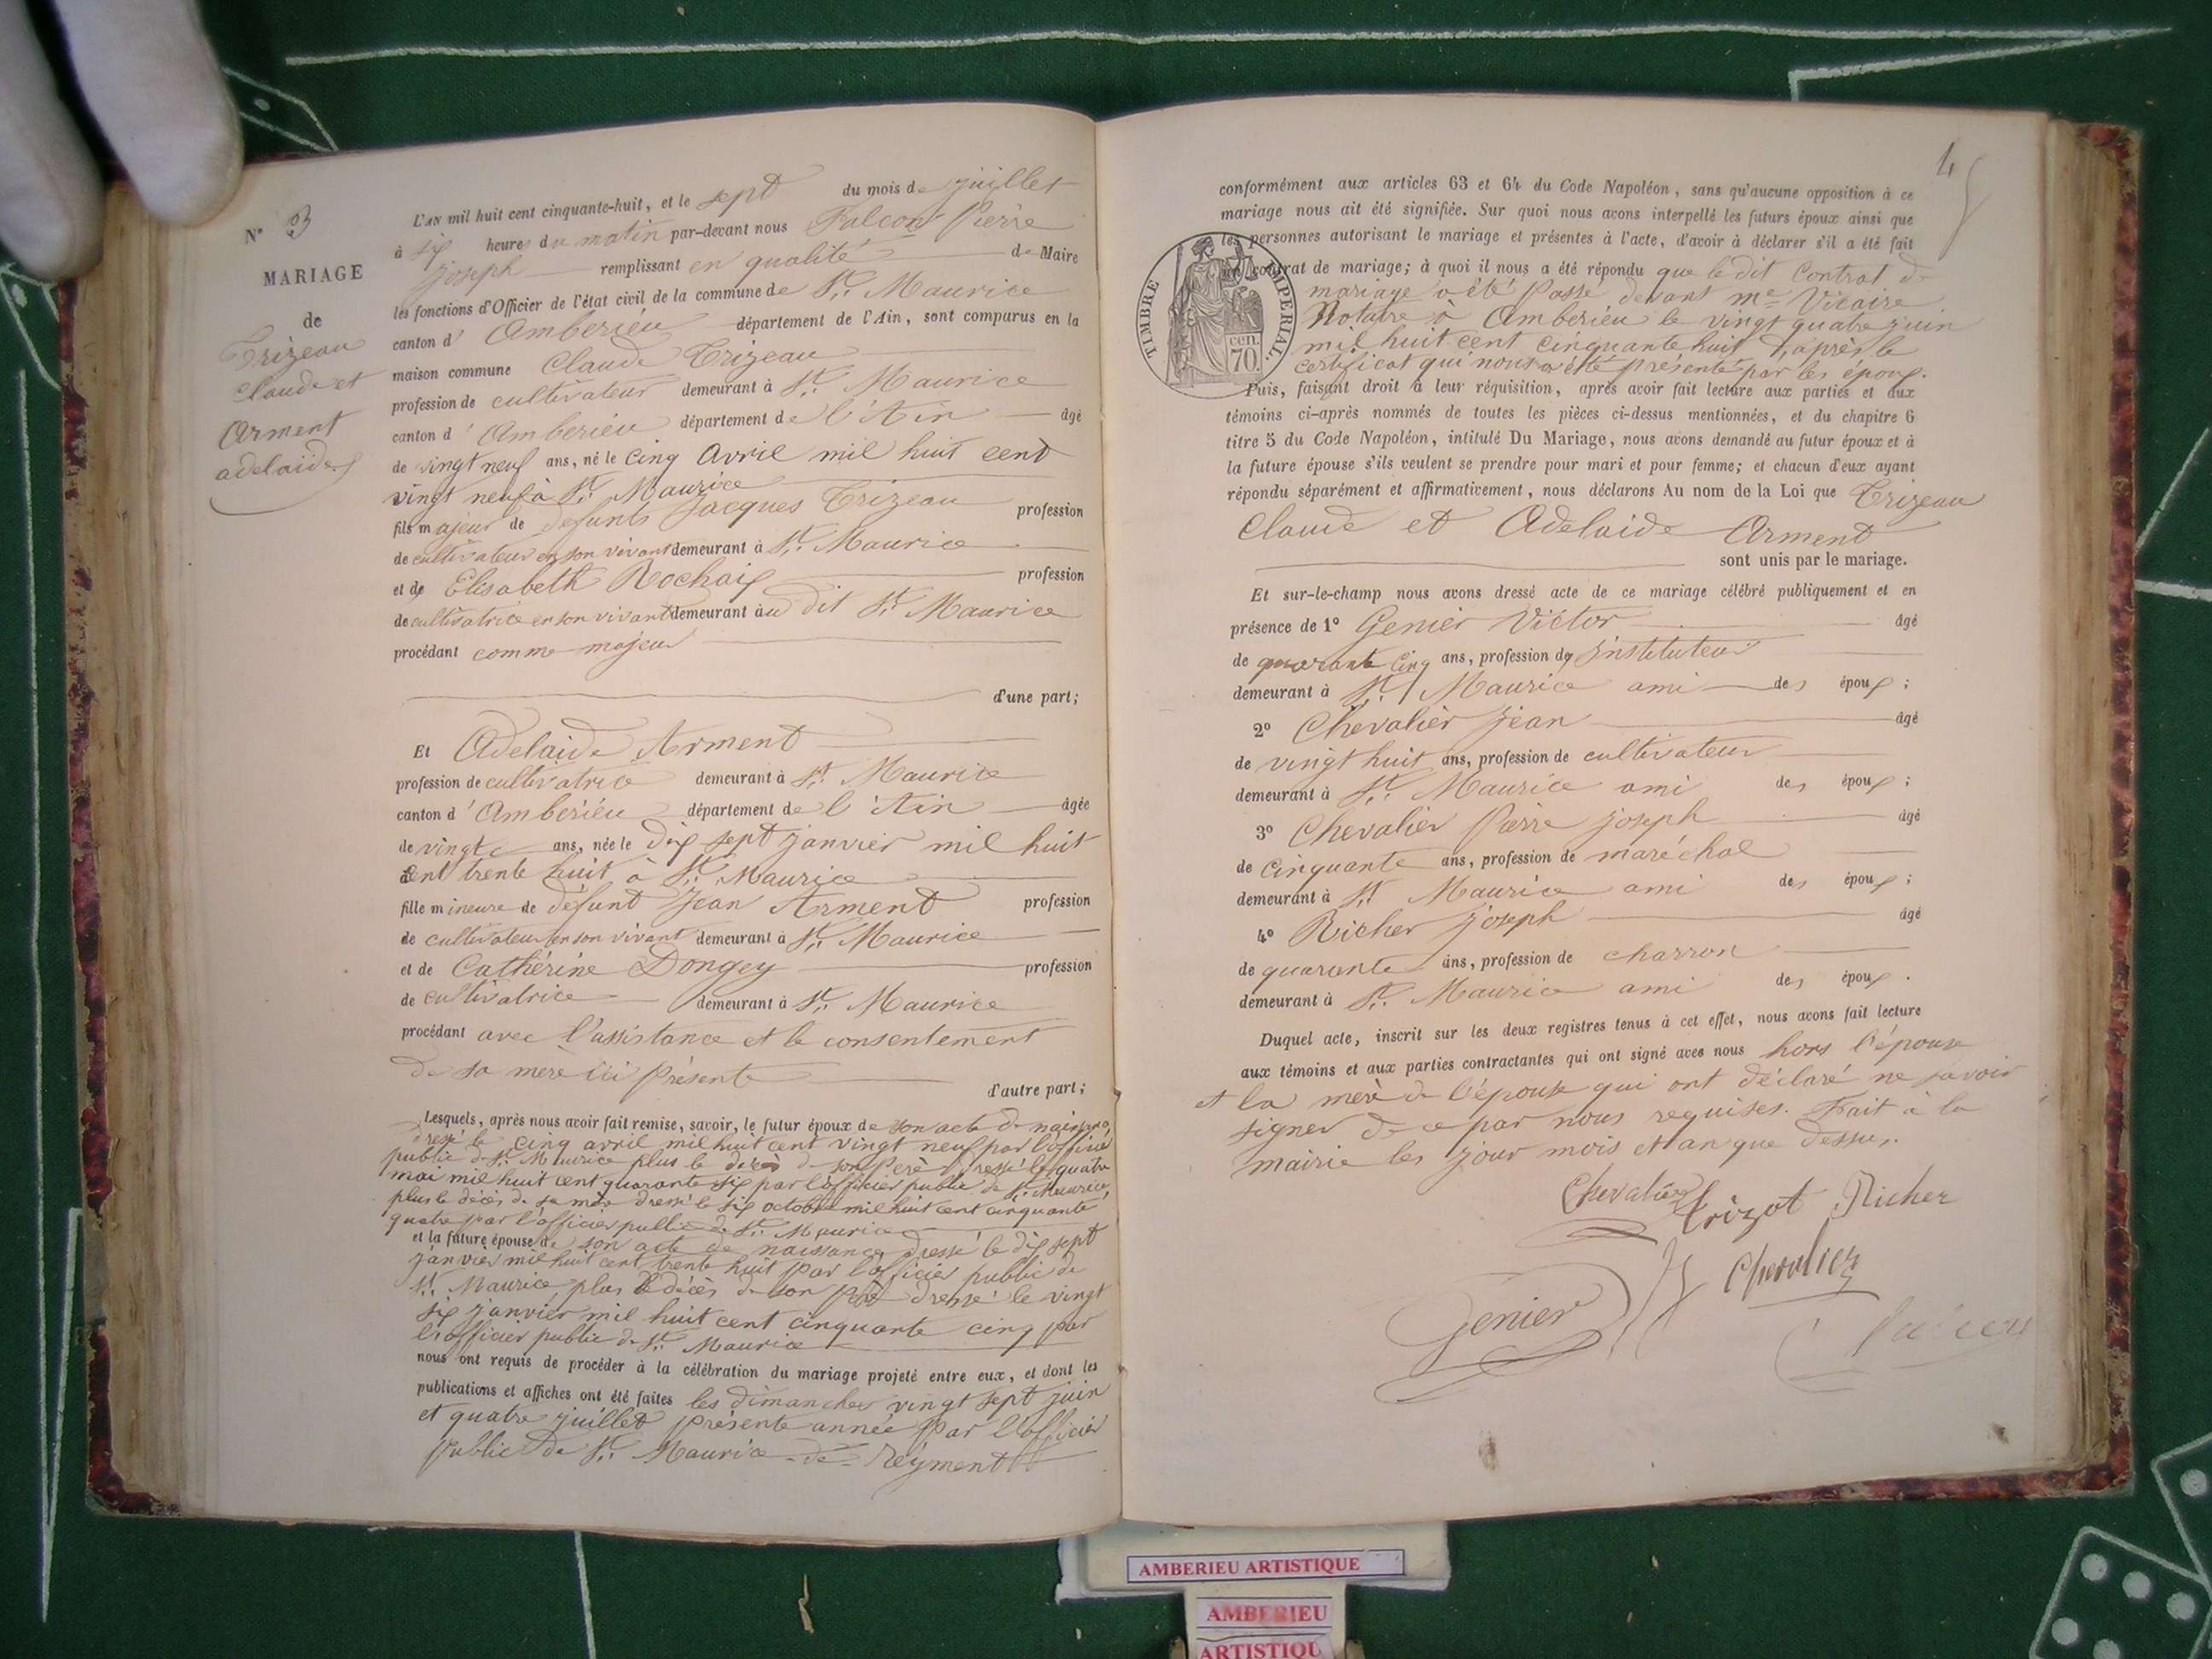 N° 3
MARIAGE
de
Trizeau
Claude et
Arment
adelaide
L'AN mil huit cent cinquante-huit, et le sept du mois de juillet
à six heures du matin par-devant nous Falcon Pierre
joseph remplissant en qualité de Maire
les fonctions d'Officier de l'état civil de la commune de St. Maurice
canton d' Amberieu département de l'Ain, sont comparus en la
maison commune Claude Trizeau
profession de cultivateur demeurant à St. Maurice
canton d' Amberieu département de l'Ain âgé
de vingt neuf ans, né le cinq Avril mil huit cent
vingt neuf à St. Maurice
fils majeur de defunts Jacques Trizeau profession
de cultivateur en son vivant demeurant à St. Maurice
et de Elisabeth Rochaix profession
de cultivatrice en son vivant demeurant au dit St. Maurice
procédant comme majeur
d'une part;
Et Adelaide Arment
profession de cultivatrice demeurant à St. Maurice
canton d' Amberiéu département de l'Ain âgée
de vingt ans, née le dix sept janvier mil huit
cent trente huit à St. Maurice
fille mineure de défunt Jean Arment profession
de cultivateur en son vivant demeurant à St. Maurice
et de Cathérine Dongey profession
de cultivatrice demeurant à St. Maurice
procédant avec l'assistance et le consentement
de sa mère ici présente
d'autre part;
Lesquels, après nous avoir fait remise, savoir, le futur époux de son acte de naissance
dressé le cinq avril mil huit cent vingt neuf par l'officier
public de St. Maurice plus le décès de son père dressé le quatre
mai mil huit cent quarante six par l'officier public de St. Maurice,
plus le décès de sa mère dressé le six octobre mil huit cent cinquante
quatre par l'officier public de St. Maurice
et la future épouse de son acte de naissance dressé le dix sept
janvier mil huit cent trente huit par l'officier public de
St. Maurice, plus le décès de son père dressé le vingt
six janvier mil huit cent cinquante cinq par
l'officier public de St. Maurice
nous ont requis de procéder à la célébration du mariage projeté entre eux, et dont les
publications et affiches ont été faites les dimanches vingt sept juin
et quatre juillet présente année par l'officier
public de St. Maurice-de-Réyment
4
conformément aux articles 63 et 64 du Code Napoléon, sans qu'aucune opposition à ce
mariage nous ait été signifiée. Sur quoi nous avons interpellé les futurs époux ainsi que
les personnes autorisant le mariage et présentes à l'acte, d'avoir à déclarer s'il a été fait
un contrat de mariage; à quoi il nous a été répondu que le dit Contrat de
mariage a été passé devant me Vicaire
Notaire à Amberieu le vingt quatre juin
mil huit cent cinquante huit d'après le
certificat qui nous a été présenté par les époux.
TIMBRE IMPERIAL.
70 cen.
Puis, faisant droit à leur réquisition, après avoir fait lecture aux parties et aux
témoins ci-après nommés de toutes les pièces ci-dessus mentionnées, et du chapitre 6
titre 5 du Code Napoléon, intitulé Du Mariage, nous avons demandé au futur époux et à
la future épouse s'ils veulent se prendre pour mari et pour femme; et chacun d'eux ayant
répondu séparément et affirmativement, nous déclarons Au nom de la Loi que Trizeau
Claude et Adelaide Arment
sont unis par le mariage.
Et sur-le-champ nous avons dressé acte de ce mariage célébré publiquement et en
présence de 1° Genier Victor âgé
de quarante cinq ans, profession de instituteur
demeurant à St. Maurice ami des époux;
2° Chevalier Jean âgé
de vingt huit ans, profession de cultivateur
demeurant à St. Maurice ami des époux;
3° Chevalier Pierre joseph âgé
de cinquante ans, profession de maréchal
demeurant à St. Maurice ami des époux;
4° Richer Joseph âgé
de quarante ans, profession de charron
demeurant à St. Maurice ami des époux.
Duquel acte, inscrit sur les deux registres tenus à cet effet, nous avons fait lecture
aux témoins et aux parties contractantes qui ont signé avec nous hors l'épouse
et la mère de l'épouse qui ont déclaré ne savoir
signer de ce par nous requises. Fait à la
mairie les jour mois et an que dessus.
Chevalier Trizot Richer
Genier Chevalier
AMBERIEU ARTISTIQUE
AMBERIEU
ARTISTIQU